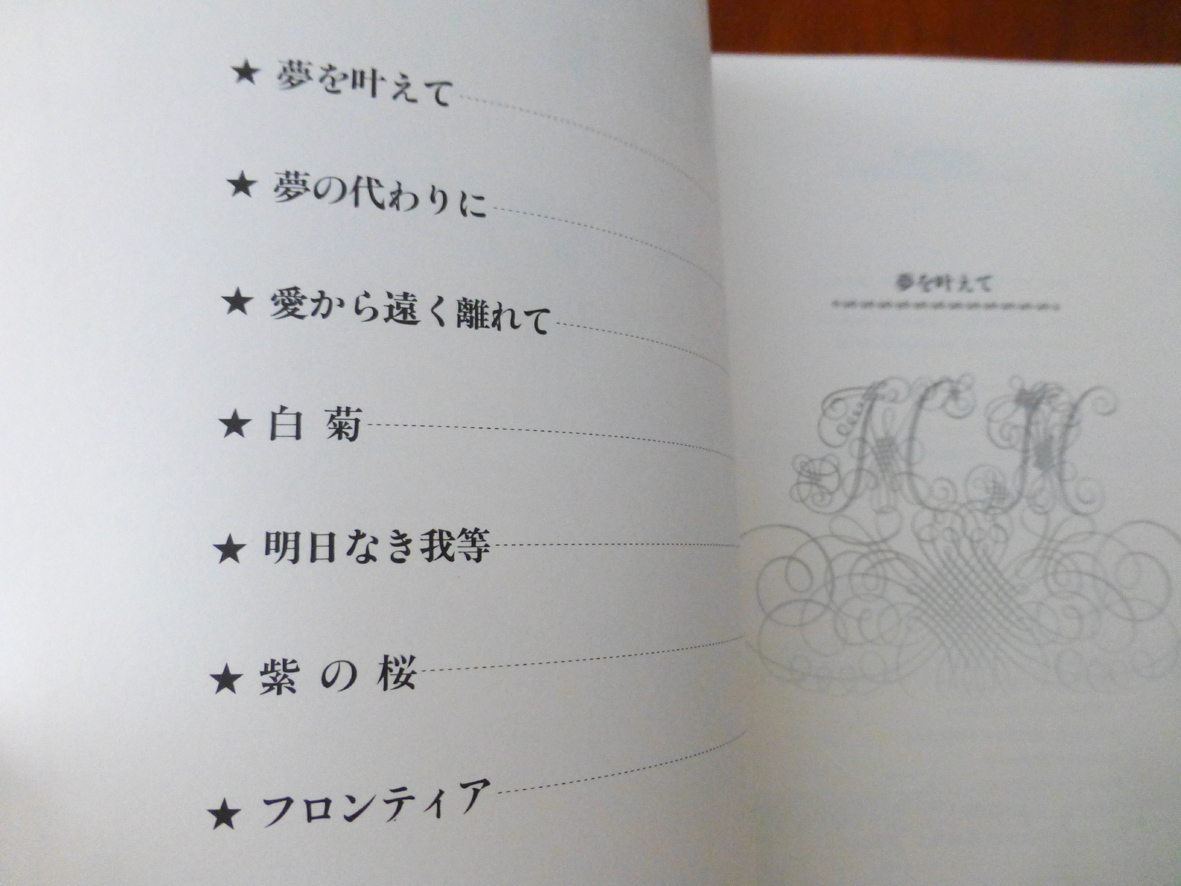 ★ 夢を叶えて
★ 夢の代わりに
★ 愛から遠く離れて
★ 白 菊
★ 明日なき我等
★ 紫 の 桜
★ フロンティア
夢を叶えて